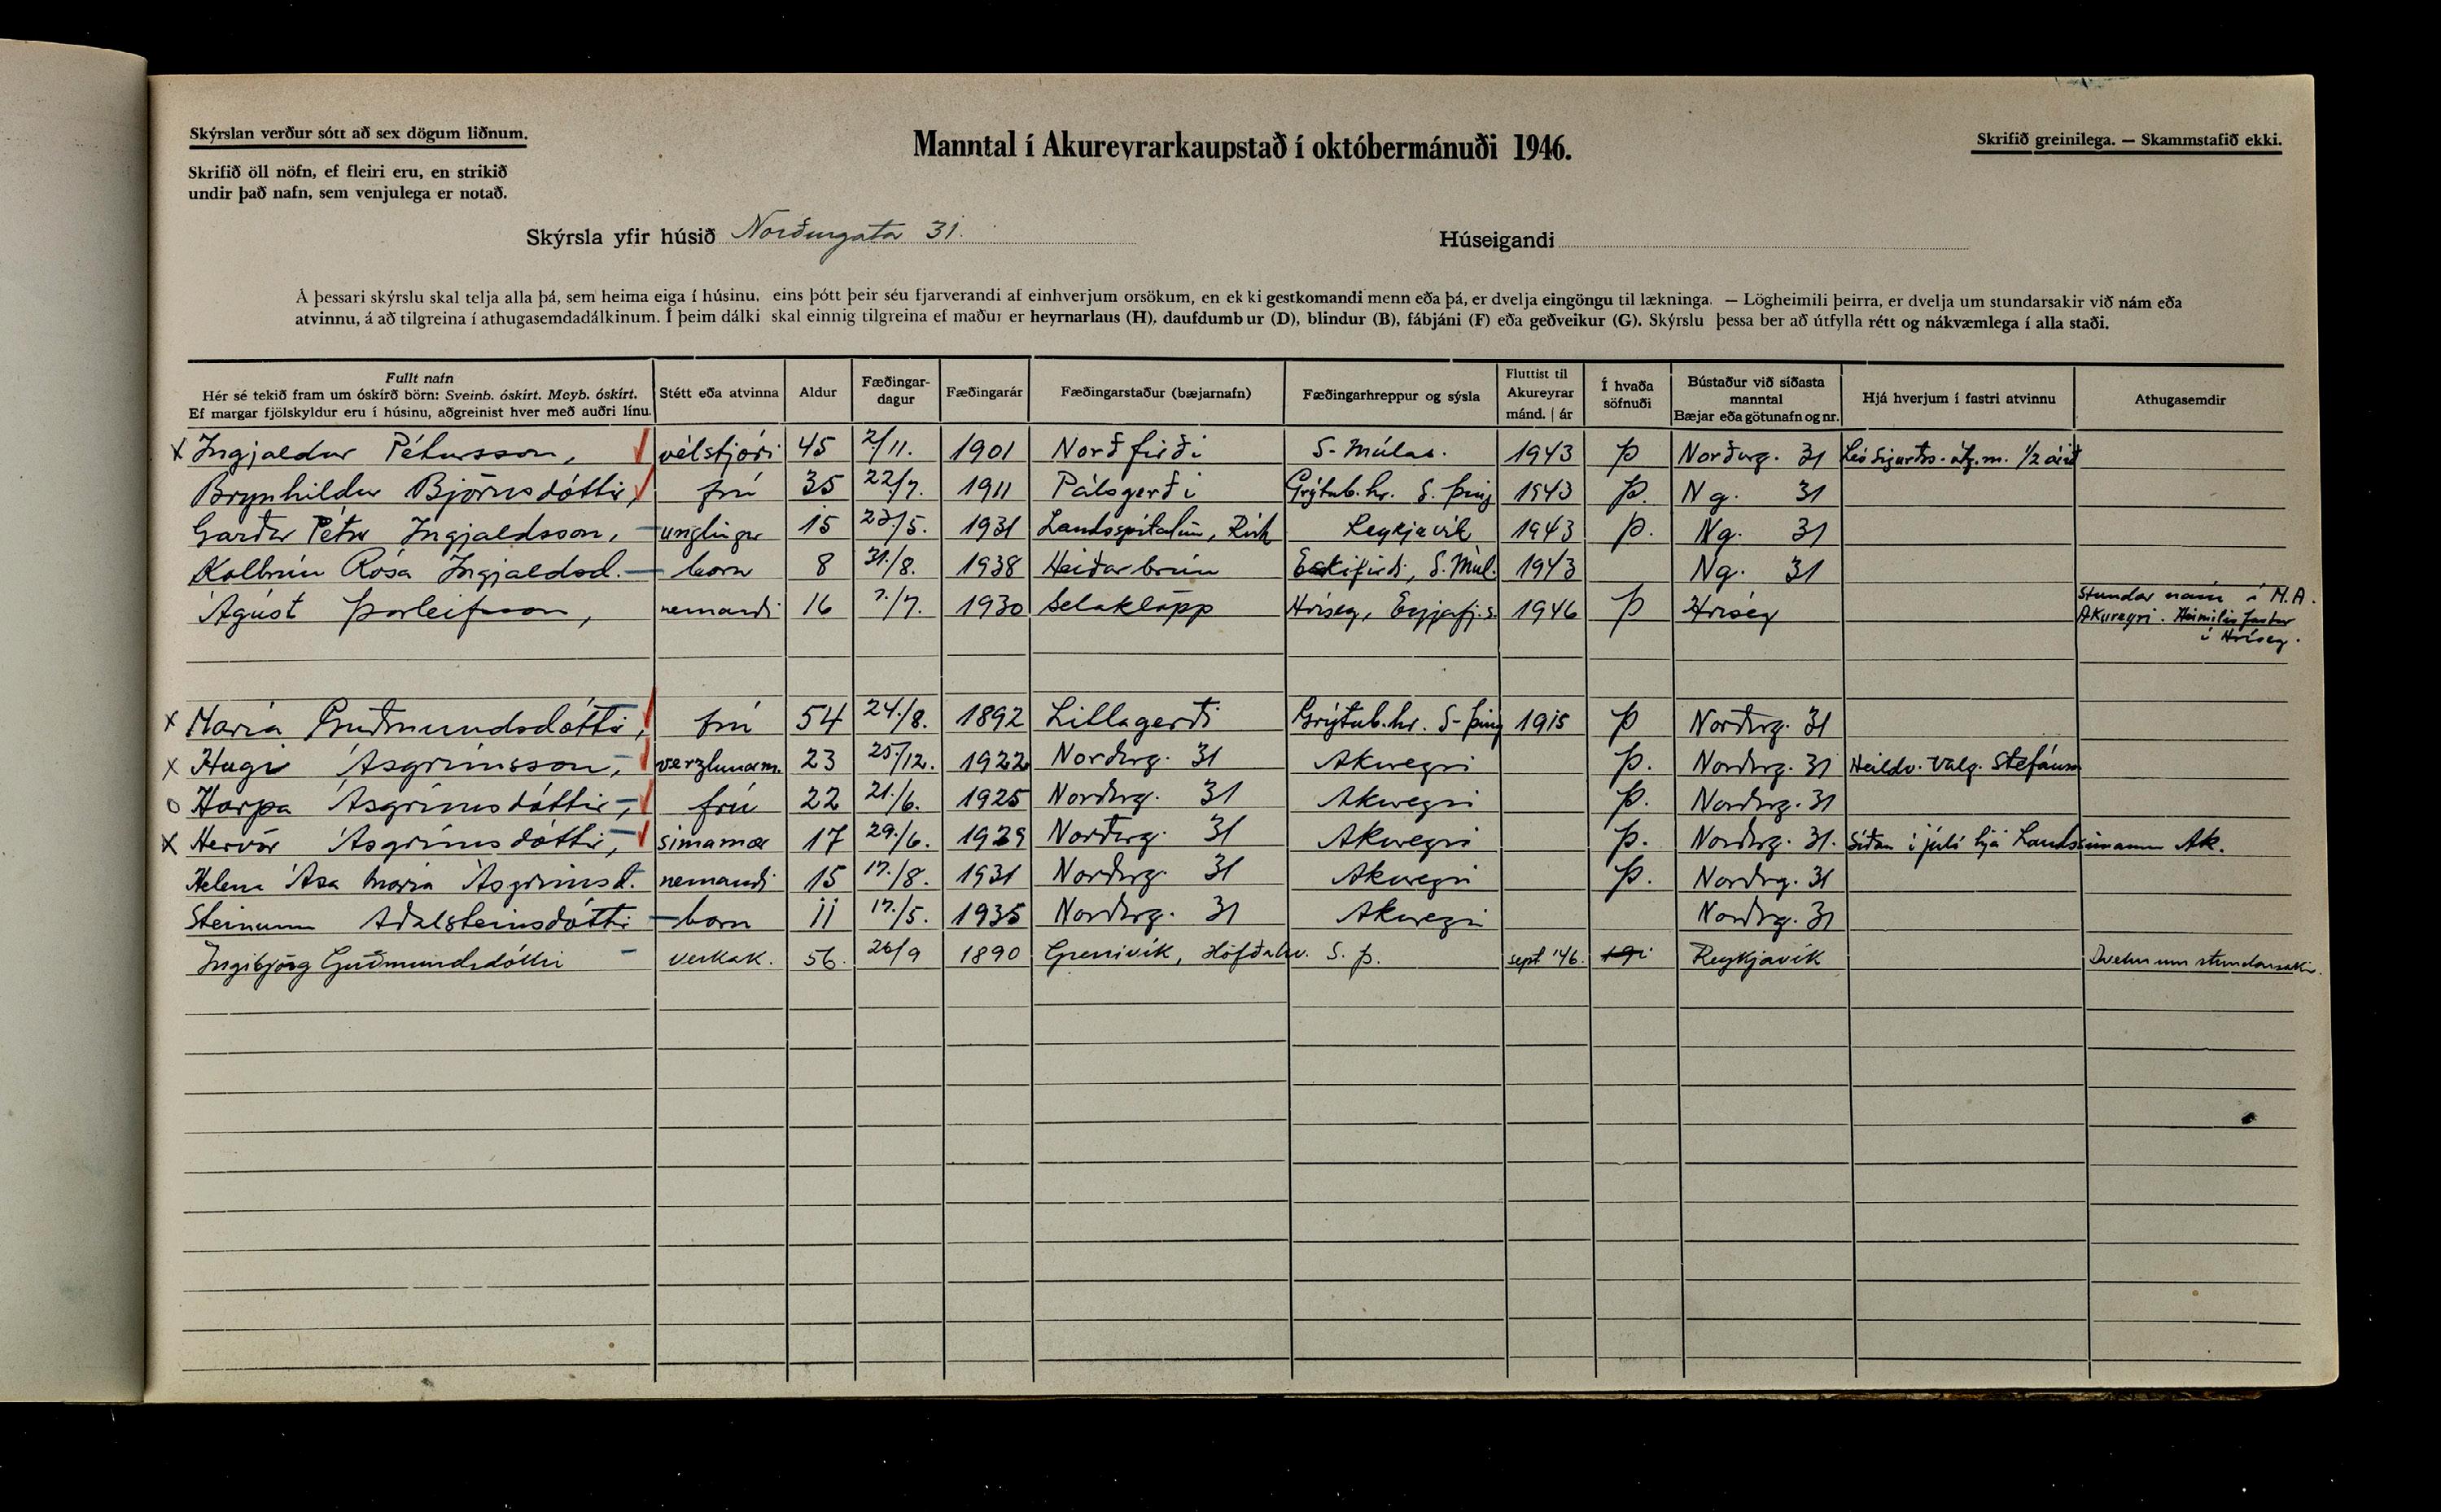 Skýrslan verður sótt að sex dögum liðnum.
Manntal í Akureyrarkaupstað í októbermánuði 1946.
Skrifið greinilega. — Skammstafið ekki.
Skrifið öll nöfn, ef fleiri eru, en strikið
undir það nafn, sem venjulega er notað.
Skýrsla yfir húsið Norðurgata 31.
Húseigandi
Á þessari skýrslu skal telja alla þá, sem heima eiga í húsinu, eins þótt þeir séu fjarverandi af einhverjum orsökum, en ekki gestkomandi menn eða þá, er dvelja eingöngu til lækninga. — Lögheimili þeirra, er dvelja um stundarsakir við nám eða
atvinnu, á að tilgreina í athugasemdadálkinum. Í þeim dálki skal einnig tilgreina ef maður er heyrnarlaus (H), daufdumbur (D), blindur (B), fábjáni (F) eða geðveikur (G). Skýrslu þessa ber að útfylla rétt og nákvæmlega í alla staði.
Fullt nafn
Hér sé tekið fram um óskírð börn: Sveinb. óskírt. Meyb. óskírt.
Ef margar fjölskyldur eru í húsinu, aðgreinist hver með auðri línu.
Stétt eða atvinna
Aldur
Fæðingar-
dagur
Fæðingarár
Fæðingarstaður (bæjarnafn)
Fæðingarhreppur og sýsla
Fluttist til
Akureyrar
mánd. | ár
Í hvaða
söfnuði
Bústaður við síðasta
manntal
Bæjar eða götunafn og nr.
Hjá hverjum í fastri atvinnu
Athugasemdir
x Ingjaldur Pétursson, vélstjóri 45 2/11. 1901 Norðfirði S-Múlas. 1943 Þ Norðurg. 31 Leó Sigurðs. útg.m. 1/2 árið
Brynhildur Björnsdóttir, frú 35 22/7. 1911 Pálsgerði Grýtub.hr. S. Þing 1943 Þ. Ng. 31
Garðar Pétur Ingjaldsson, unglingur 15 23/5. 1931 Landsspítalin, Rvk Reykjavík 1943 Þ. Ng. 31
Kolbrún Rósa Ingjaldsd. born 8 31./8. 1938 Heiðarbrún Eskifirði, S.Múl. 1943 Ng. 31
Ágúst Þorleifsson, nemandi 16 7./7. 1930 Selaklöpp Hrísey, Eyjafj.s. 1946 Þ Hrísey Stundar nám í M.A.
Akureyri. Heimilisfastur
í Hrísey.
x María Guðmundsdóttir, frú 54 24./8. 1892 Litlagerði Grýtub.hr. S-Þing 1915 Þ Norðurg. 31
x Hugi Ásgrímsson, verzlunarm. 23 25/12. 1922 Norðurg. 31 Akureyri Þ. Norðurg. 31 Heildv. Valg. Stefánss
o Harpa Ásgrímsdóttir, frú 22 21./6. 1925 Norðurg. 31 Akureyri Þ. Norðurg. 31
x Hervör Ásgrímsdóttir, símamær 17 29./6. 1929 Norðurg. 31 Akureyri Þ. Norðurg. 31. Síðan í júlí hjá Landsímanum Ak.
Helena Ása María Ásgrímsd. nemandi 15 17./8. 1931 Norðurg. 31 Akureyri Þ. Norðurg. 31
Steinunn Aðalsteinsdóttir born 11 17./5. 1935 Norðurg. 31 Akureyri Norðurg. 31
Ingibjörg Guðmundsdóttir verkak. 56. 26/9 1890 Grenivík, Höfðahv. S. Þ. sept '46. Reykjavík Dvelur um stundarsakir.